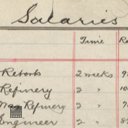 Salaries
Time Ra
Retorts 2 weeks 9
Refinery 2 " 10
Wax Refinery 2 " 7
Engineer 2 " 8